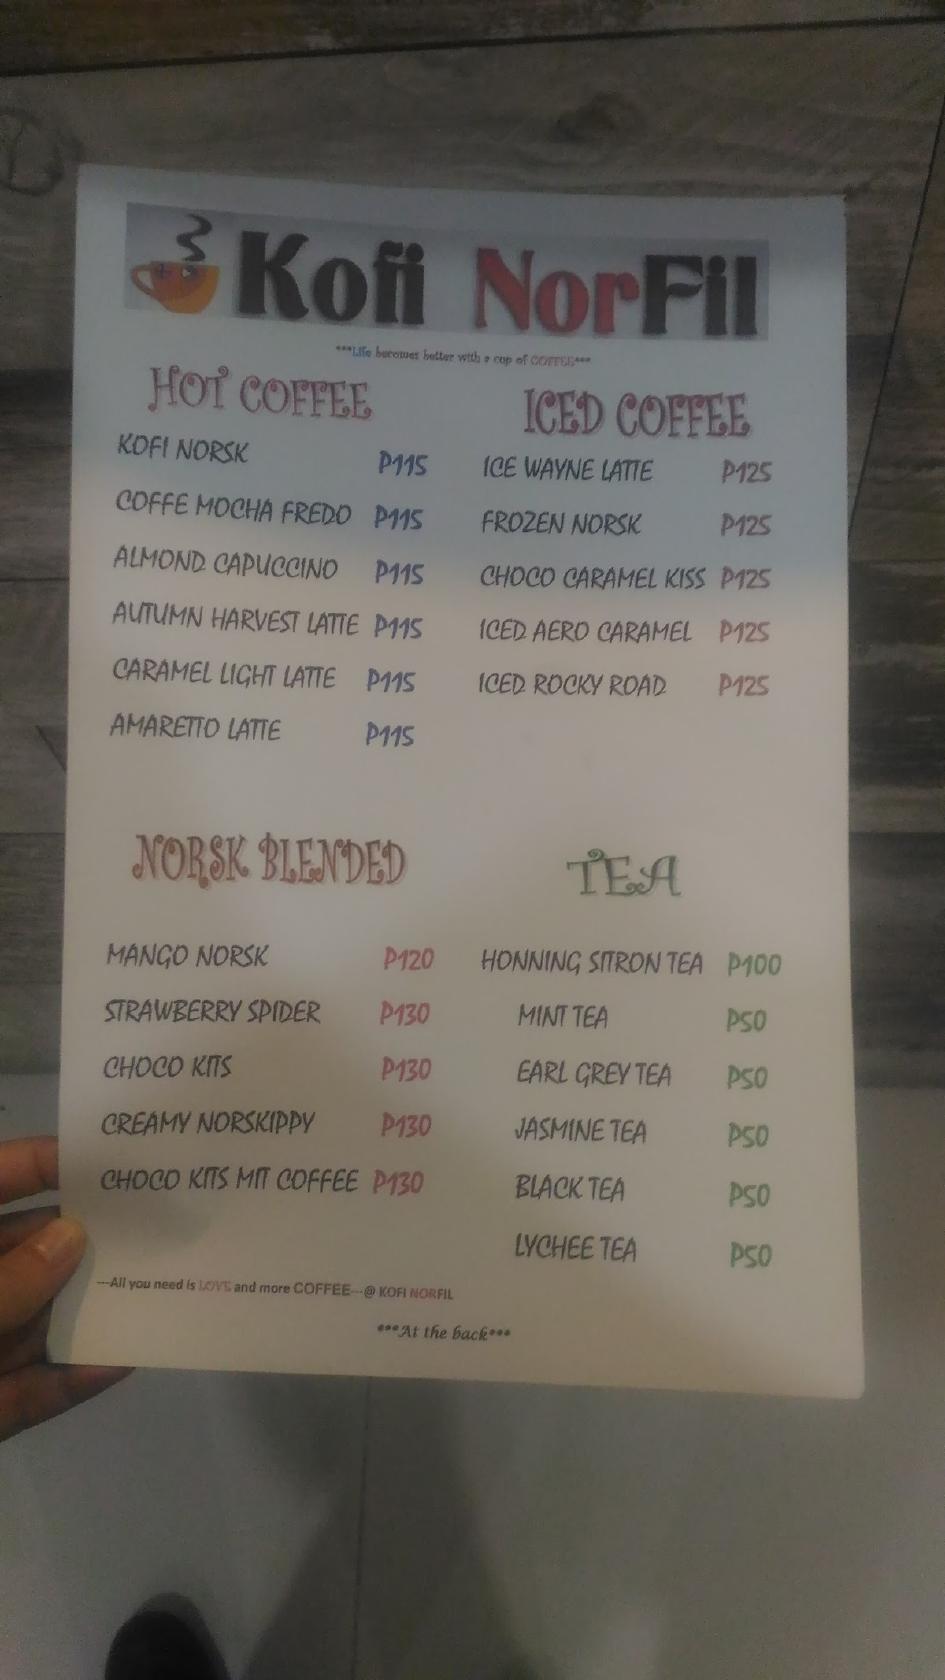 Kofi NorFil
***Life becomes better with a cup of COFFEE***
HOT COFFEE
KOFI NORSK P115
COFFE MOCHA FREDO P115
ALMOND CAPUCCINO P115
AUTUMN HARVEST LATTE P115
CARAMEL LIGHT LATTE P115
AMARETTO LATTE P115
ICED COFFEE
ICE WAYNE LATTE P125
FROZEN NORSK P125
CHOCO CARAMEL KISS P125
ICED AERO CARAMEL P125
ICED ROCKY ROAD P125
NORSK BLENDED
MANGO NORSK P120
STRAWBERRY SPIDER P130
CHOCO KITS P130
CREAMY NORSKIPPY P130
CHOCO KITS MIT COFFEE P130
TEA
HONNING SITRON TEA P100
MINT TEA P50
EARL GREY TEA P50
JASMINE TEA P50
BLACK TEA P50
LYCHEE TEA P50
---All you need is LOVE and more COFFEE---@ KOFI NORFIL
***At the back***